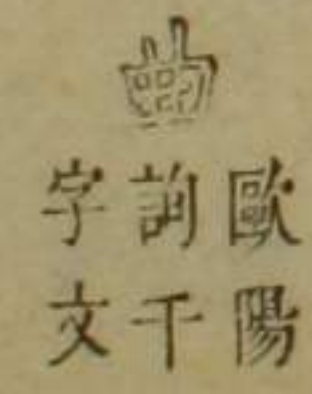 歐陽
詢千
字文